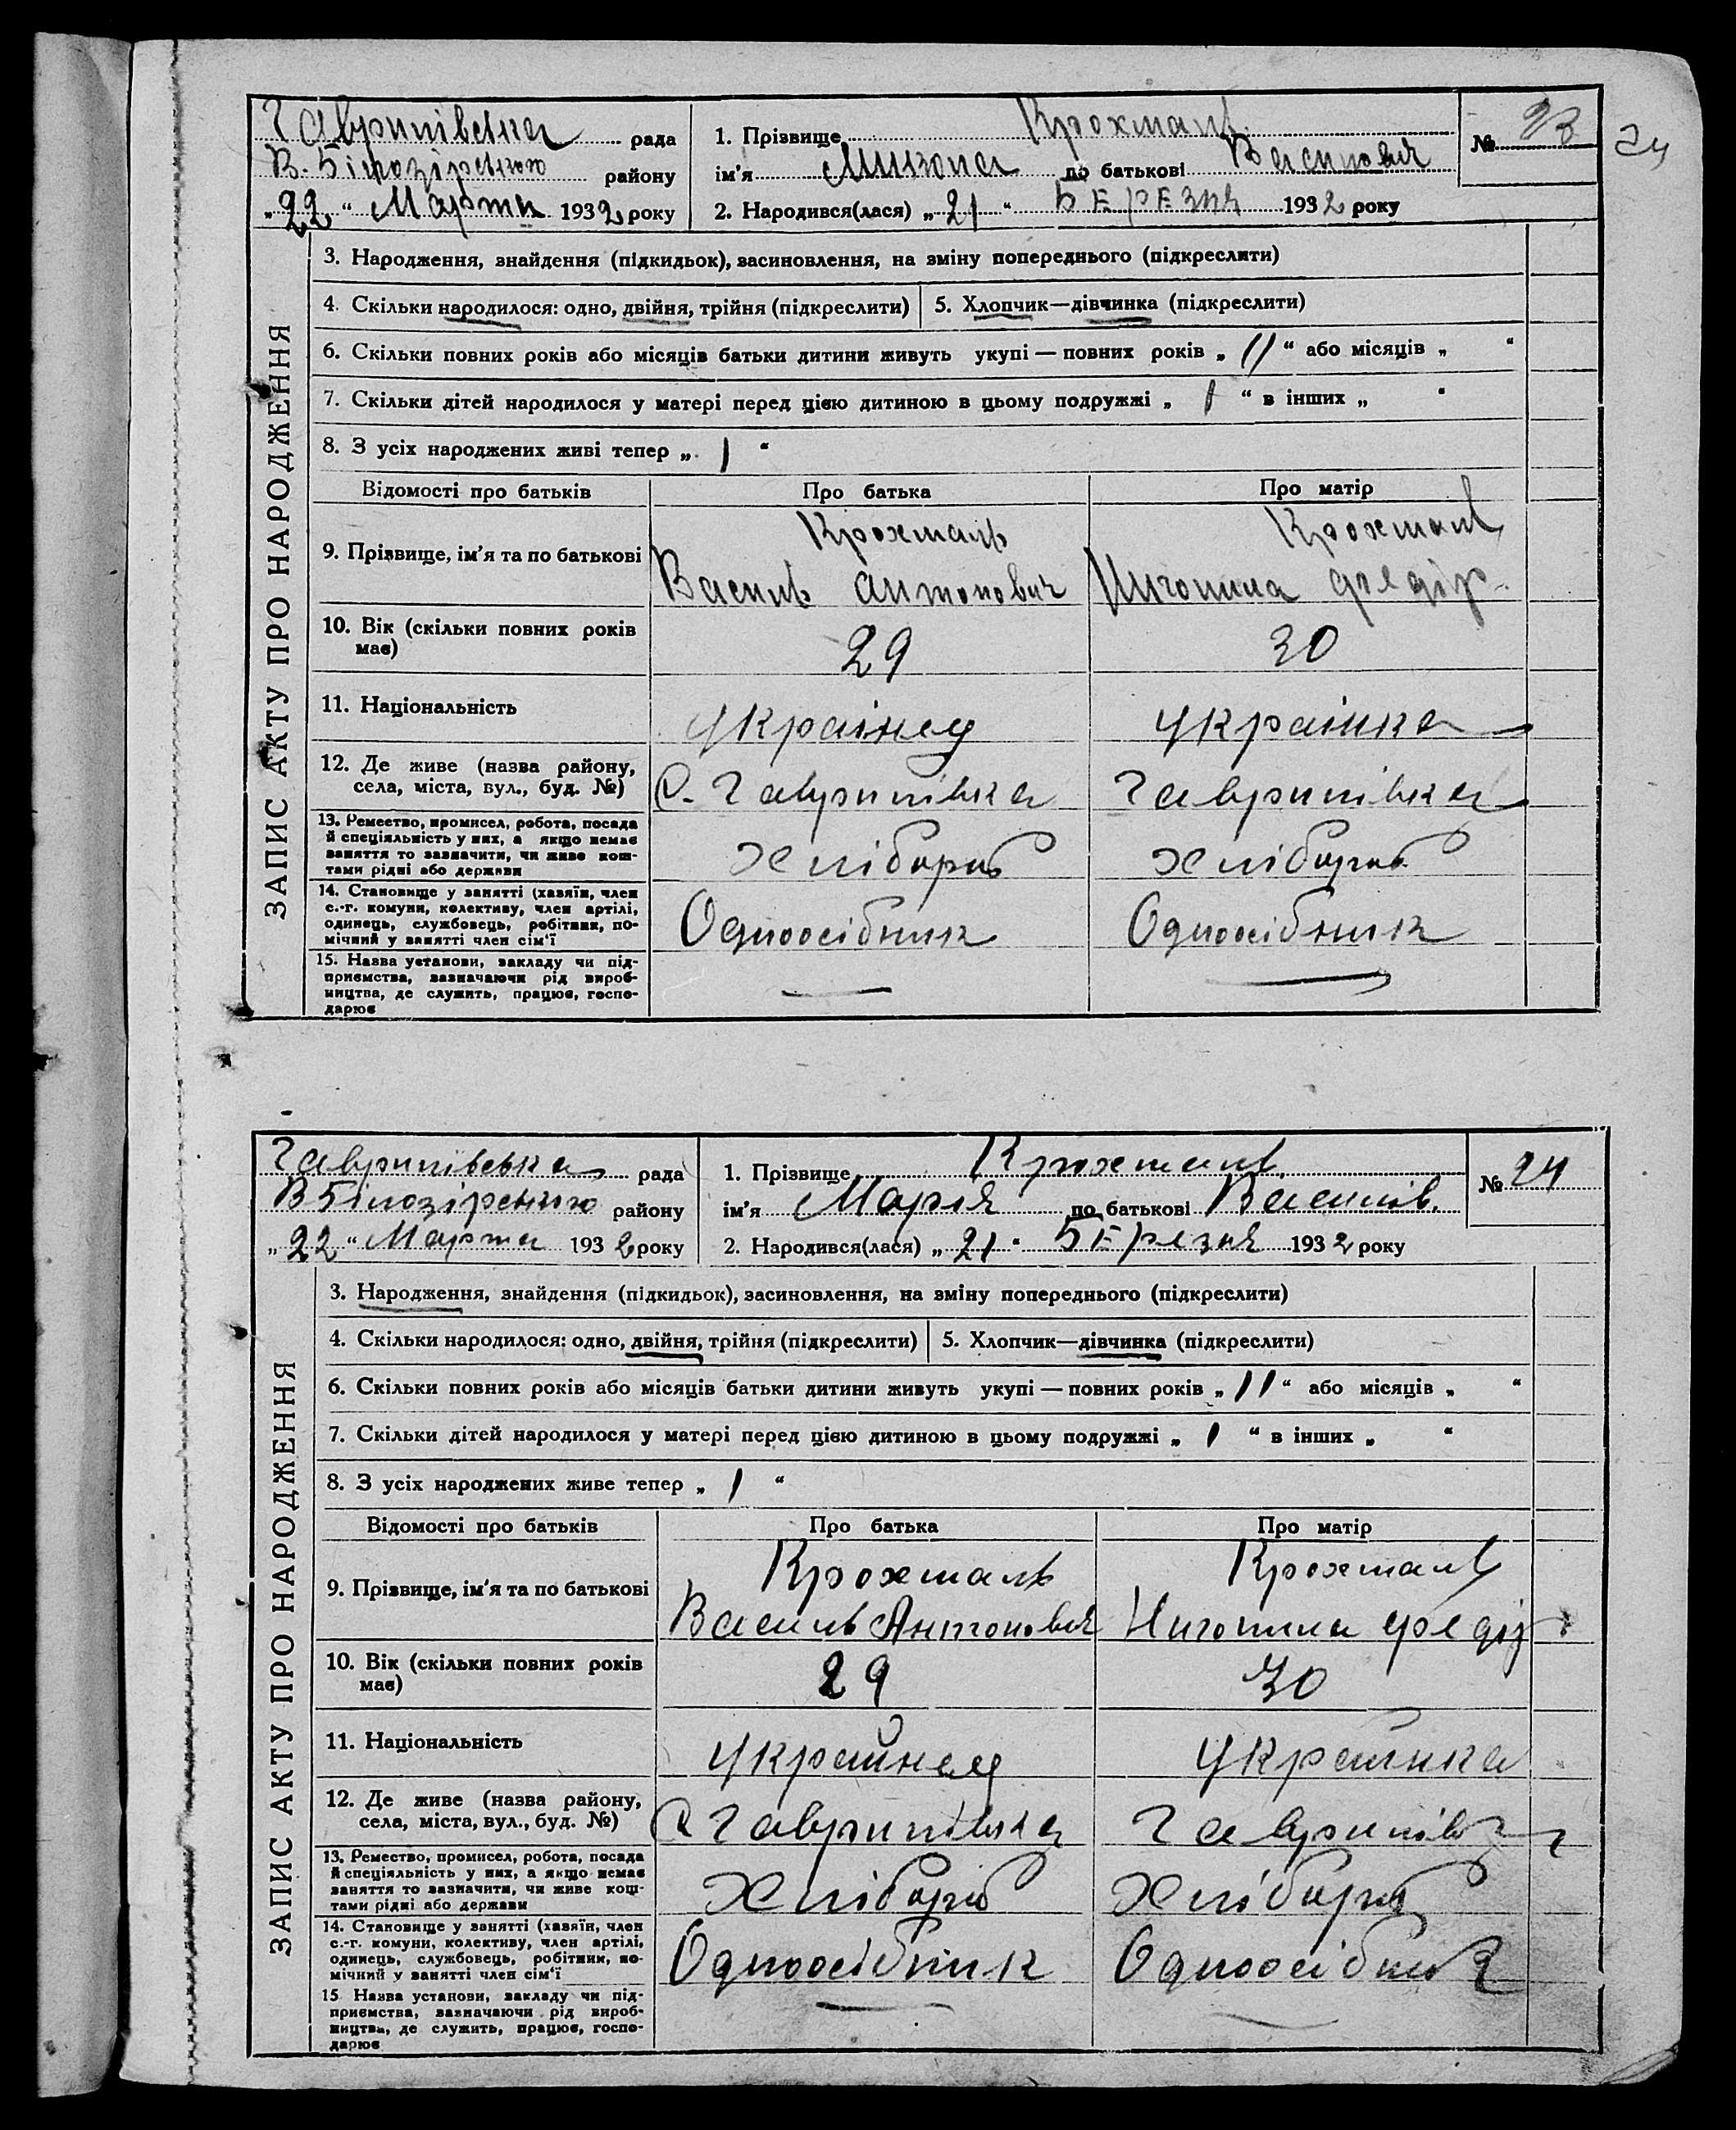 Гаврилівська рада
В. Білозірського району
„22“ Марта 1932 року
1. Прізвище Крохмаль
ім'я Микола по батькові Васильович
2. Народився(лася) „21“ БЕРЕЗНЯ 1932 року
№ 23
24
ЗАПИС АКТУ ПРО НАРОДЖЕННЯ
3. Народження, знайдення (підкидьок), засиновлення, на зміну попереднього (підкреслити)
4. Скільки народилося: одно, двійня, трійня (підкреслити) 5. Хлопчик—дівчинка (підкреслити)
6. Скільки повних років або місяців батьки дитини живуть укупі — повних років „11“ або місяців „ “
7. Скільки дітей народилося у матері перед цією дитиною в цьому подружжі „1“ в інших „ “
8. З усіх народжених живі тепер „1“
Відомості про батьків Про батька Про матір
9. Прізвище, ім'я та по батькові
Крохмаль Крохмаль
Василь Антонович Федір.
10. Вік (скільки повних років
має)
29 30
11. Національність
Українец Українка
12. Де живе (назва району,
села, міста, вул., буд. №)
С. Гаврилівка Гаврилівка
13. Ремество, промисел, робота, посада
й спеціяльність у них, а якщо немає
заняття то зазначити, чи живе кош-
тами рідні або держави
Хлібороб Хлібороб
14. Становище у занятті (хазяїн, член
с.-г. комуни, колективу, член артілі,
одинець, службовець, робітник, по-
мічний у занятті член сім'ї
Одноосібник Одноосібник
15. Назва установи, закладу чи під-
приємства, зазначаючи рід вироб-
ництва, де служить, працює, госпо-
дарює
Гаврилівська рада
В Білозірського району
„22“ Марта 1932 року
1. Прізвище Крохмаль
ім'я Марія по батькові Василів.
2. Народився(лася) „21“ БЕрезня 1932 року
№ 24
ЗАПИС АКТУ ПРО НАРОДЖЕННЯ
3. Народження, знайдення (підкидьок), засиновлення, на зміну попереднього (підкреслити)
4. Скільки народилося: одно, двійня, трійня (підкреслити) 5. Хлопчик—дівчинка (підкреслити)
6. Скільки повних років або місяців батьки дитини живуть укупі — повних років „11“ або місяців „ “
7. Скільки дітей народилося у матері перед цією дитиною в цьому подружжі „1“ в інших „ “
8. З усіх народжених живе тепер „1“
Відомості про батьків Про батька Про матір
9. Прізвище, ім'я та по батькові
Крохмаль Крохмаль
Василь Антонович Федір
10. Вік (скільки повних років
має)
29 30
11. Національність
Украйнец Українка
12. Де живе (назва району,
села, міста, вул., буд. №)
С Гаврилівка Гаврилівка
13. Ремество, промисел, робота, посада
й спеціяльність у них, а якщо немає
заняття то зазначити, чи живе кош-
тами рідні або держави
Хлібороб Хлібороб
14. Становище у занятті (хазяїн, член
с.-г. комуни, колективу, член артілі,
одинець, службовець, робітник, по-
мічний у занятті член сім'ї
Одноосібник Одноосібник
15 Назва установи, закладу чи під-
приємства, зазначаючи рід вироб-
ництва, де служить, працює, госпо-
дарює